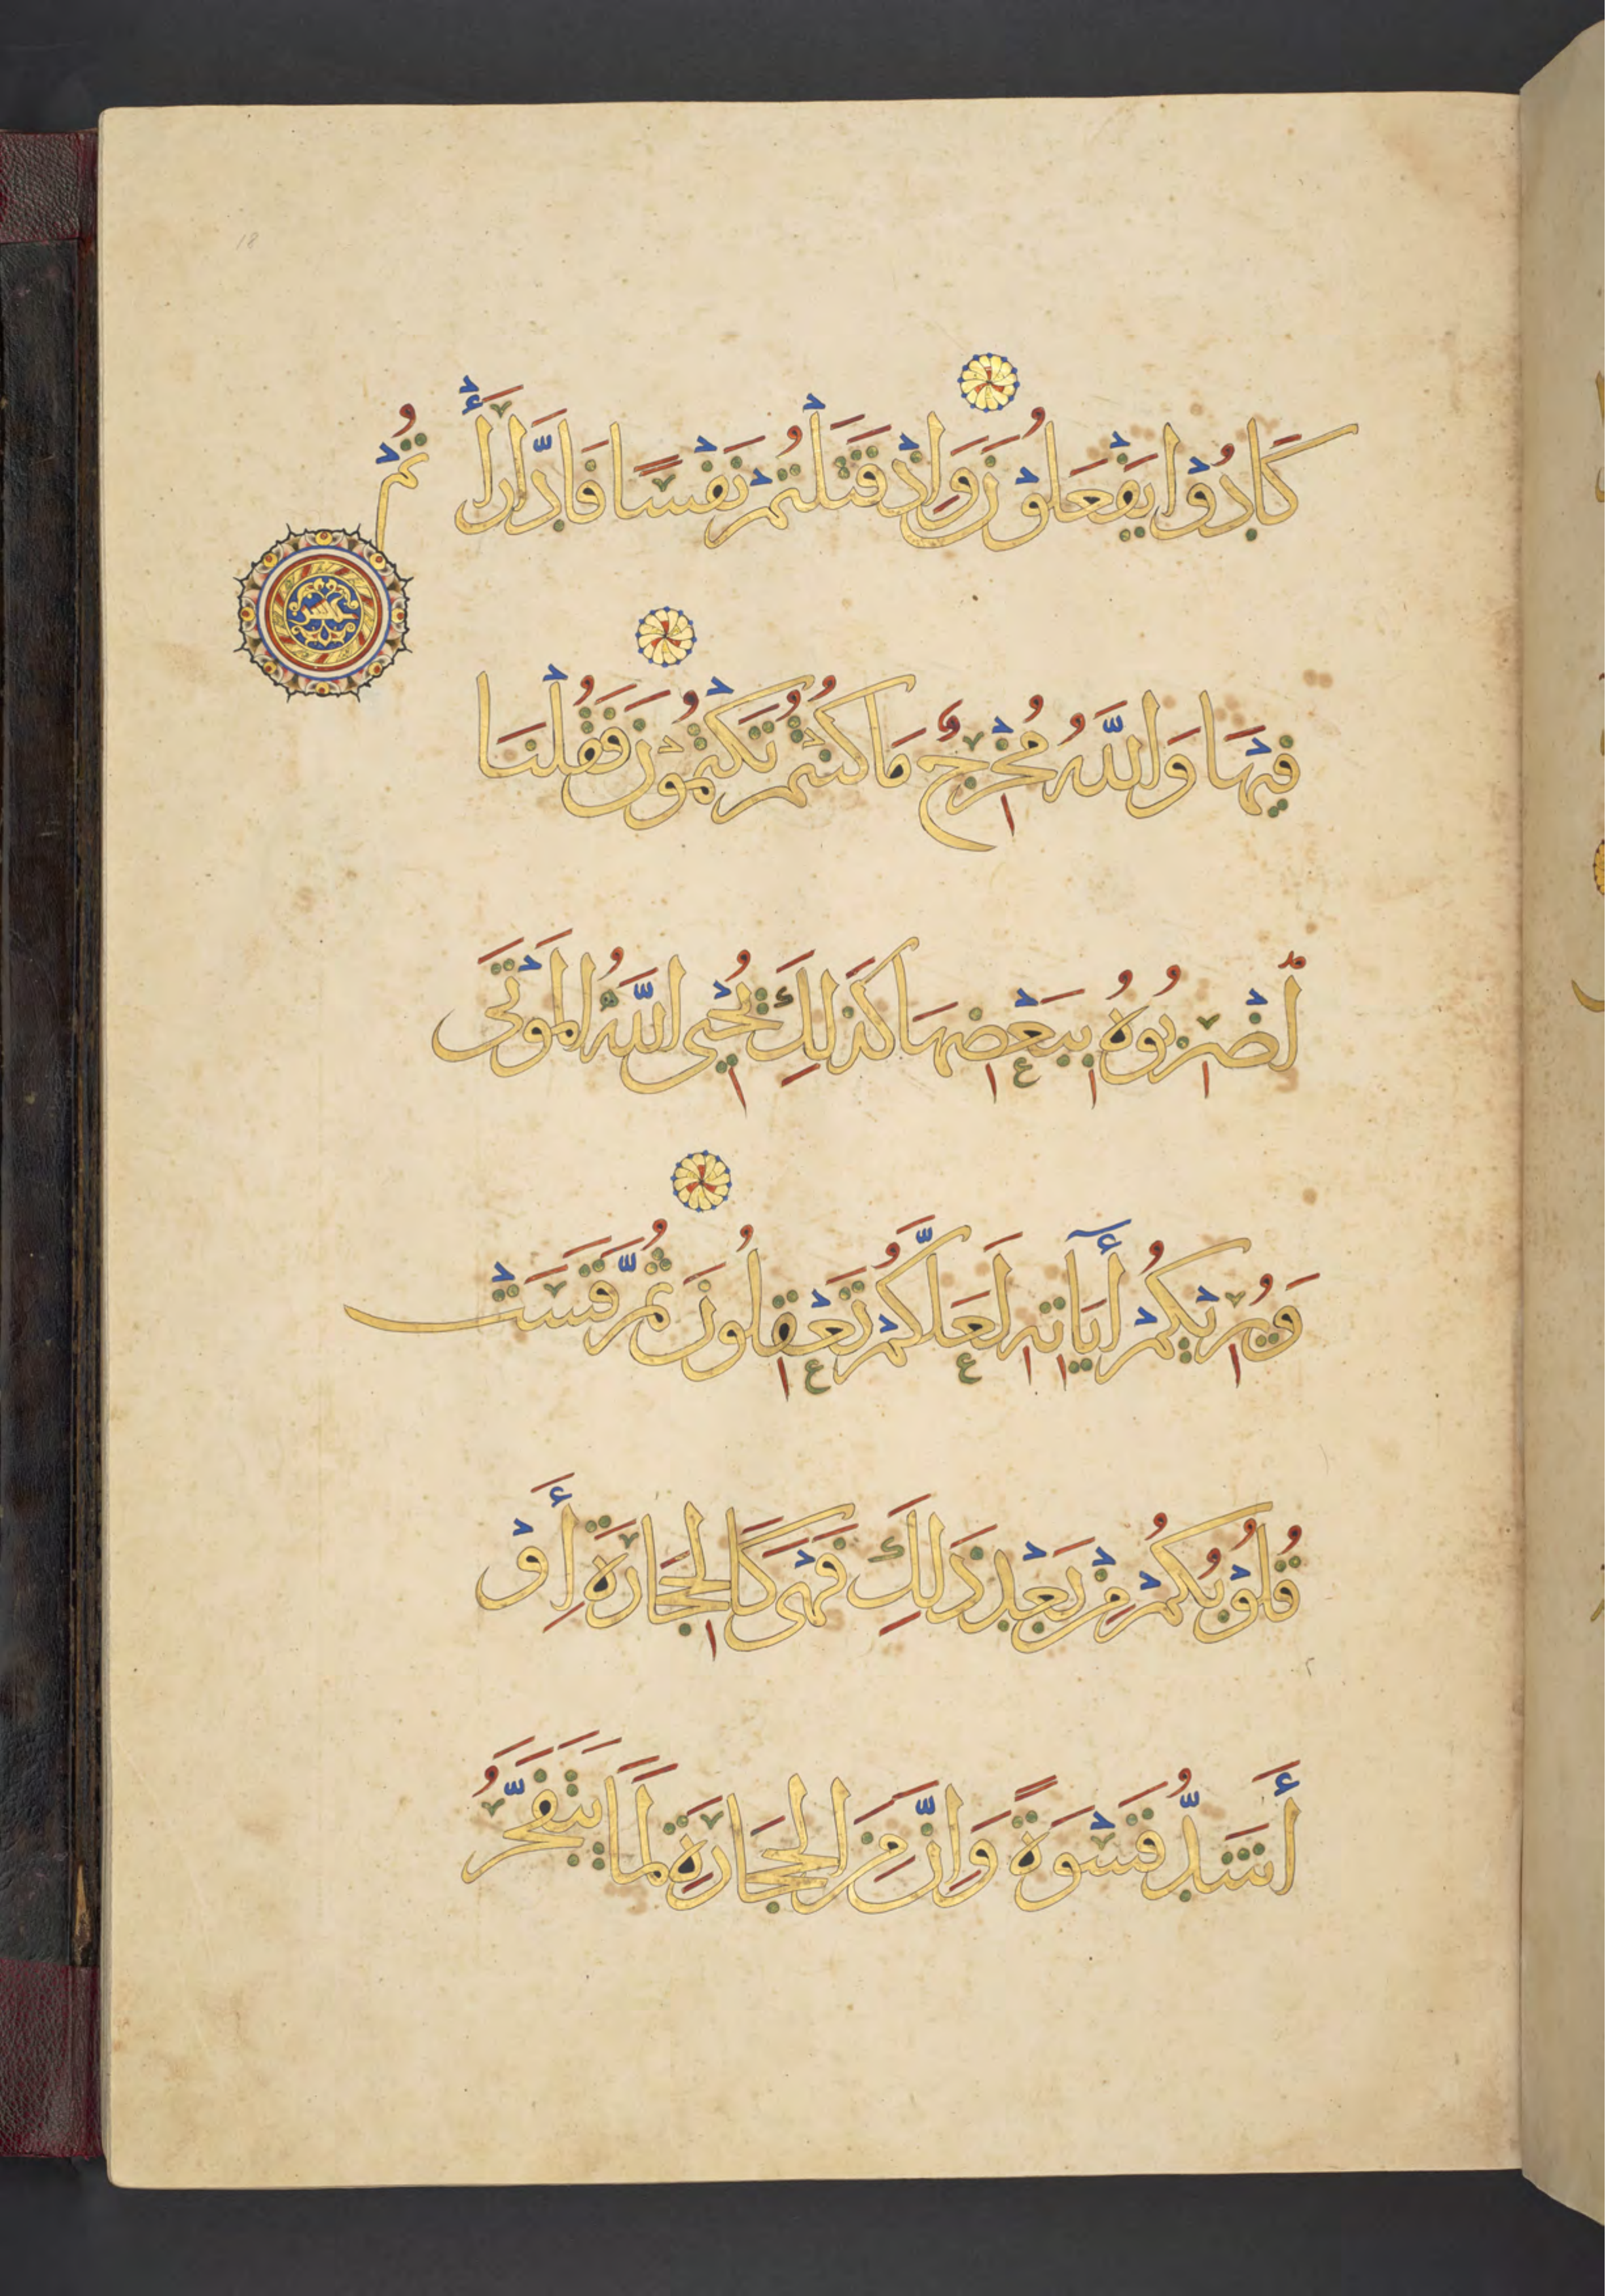 كَادُوْا يَفْعَلُوْنَ وَاِذْ قَتَلْتُمْ نَفْسًا فَادَّارَأْتُمْ
عشر
فِيْهَا وَاللَّهُ مُخْرِجٌ مَا كُنْتُمْ تَكْتُمُوْنَ فَقُلْنَا
اضْرِبُوهُ بِبَعْضِهَا كَذَلِكَ يُحْيِي اللَّهُ الْمَوْتَى
وَيُرِيْكُمْ أٰيَاتِهِ لَعَلَّكُمْ تَعْقِلُونَ ثُمَّ قَسَتْ
قُلُوْبُكُمْ مِنْ بَعْدِ ذَلِكَ فَهْيَ كَالْحِجَارَةِ أَوْ
أَشَدُّ قَسْوَةً وَاِنَّ مِنَ الْحِجَارَةِ لَمَا يَتَفَجَّرُ
18